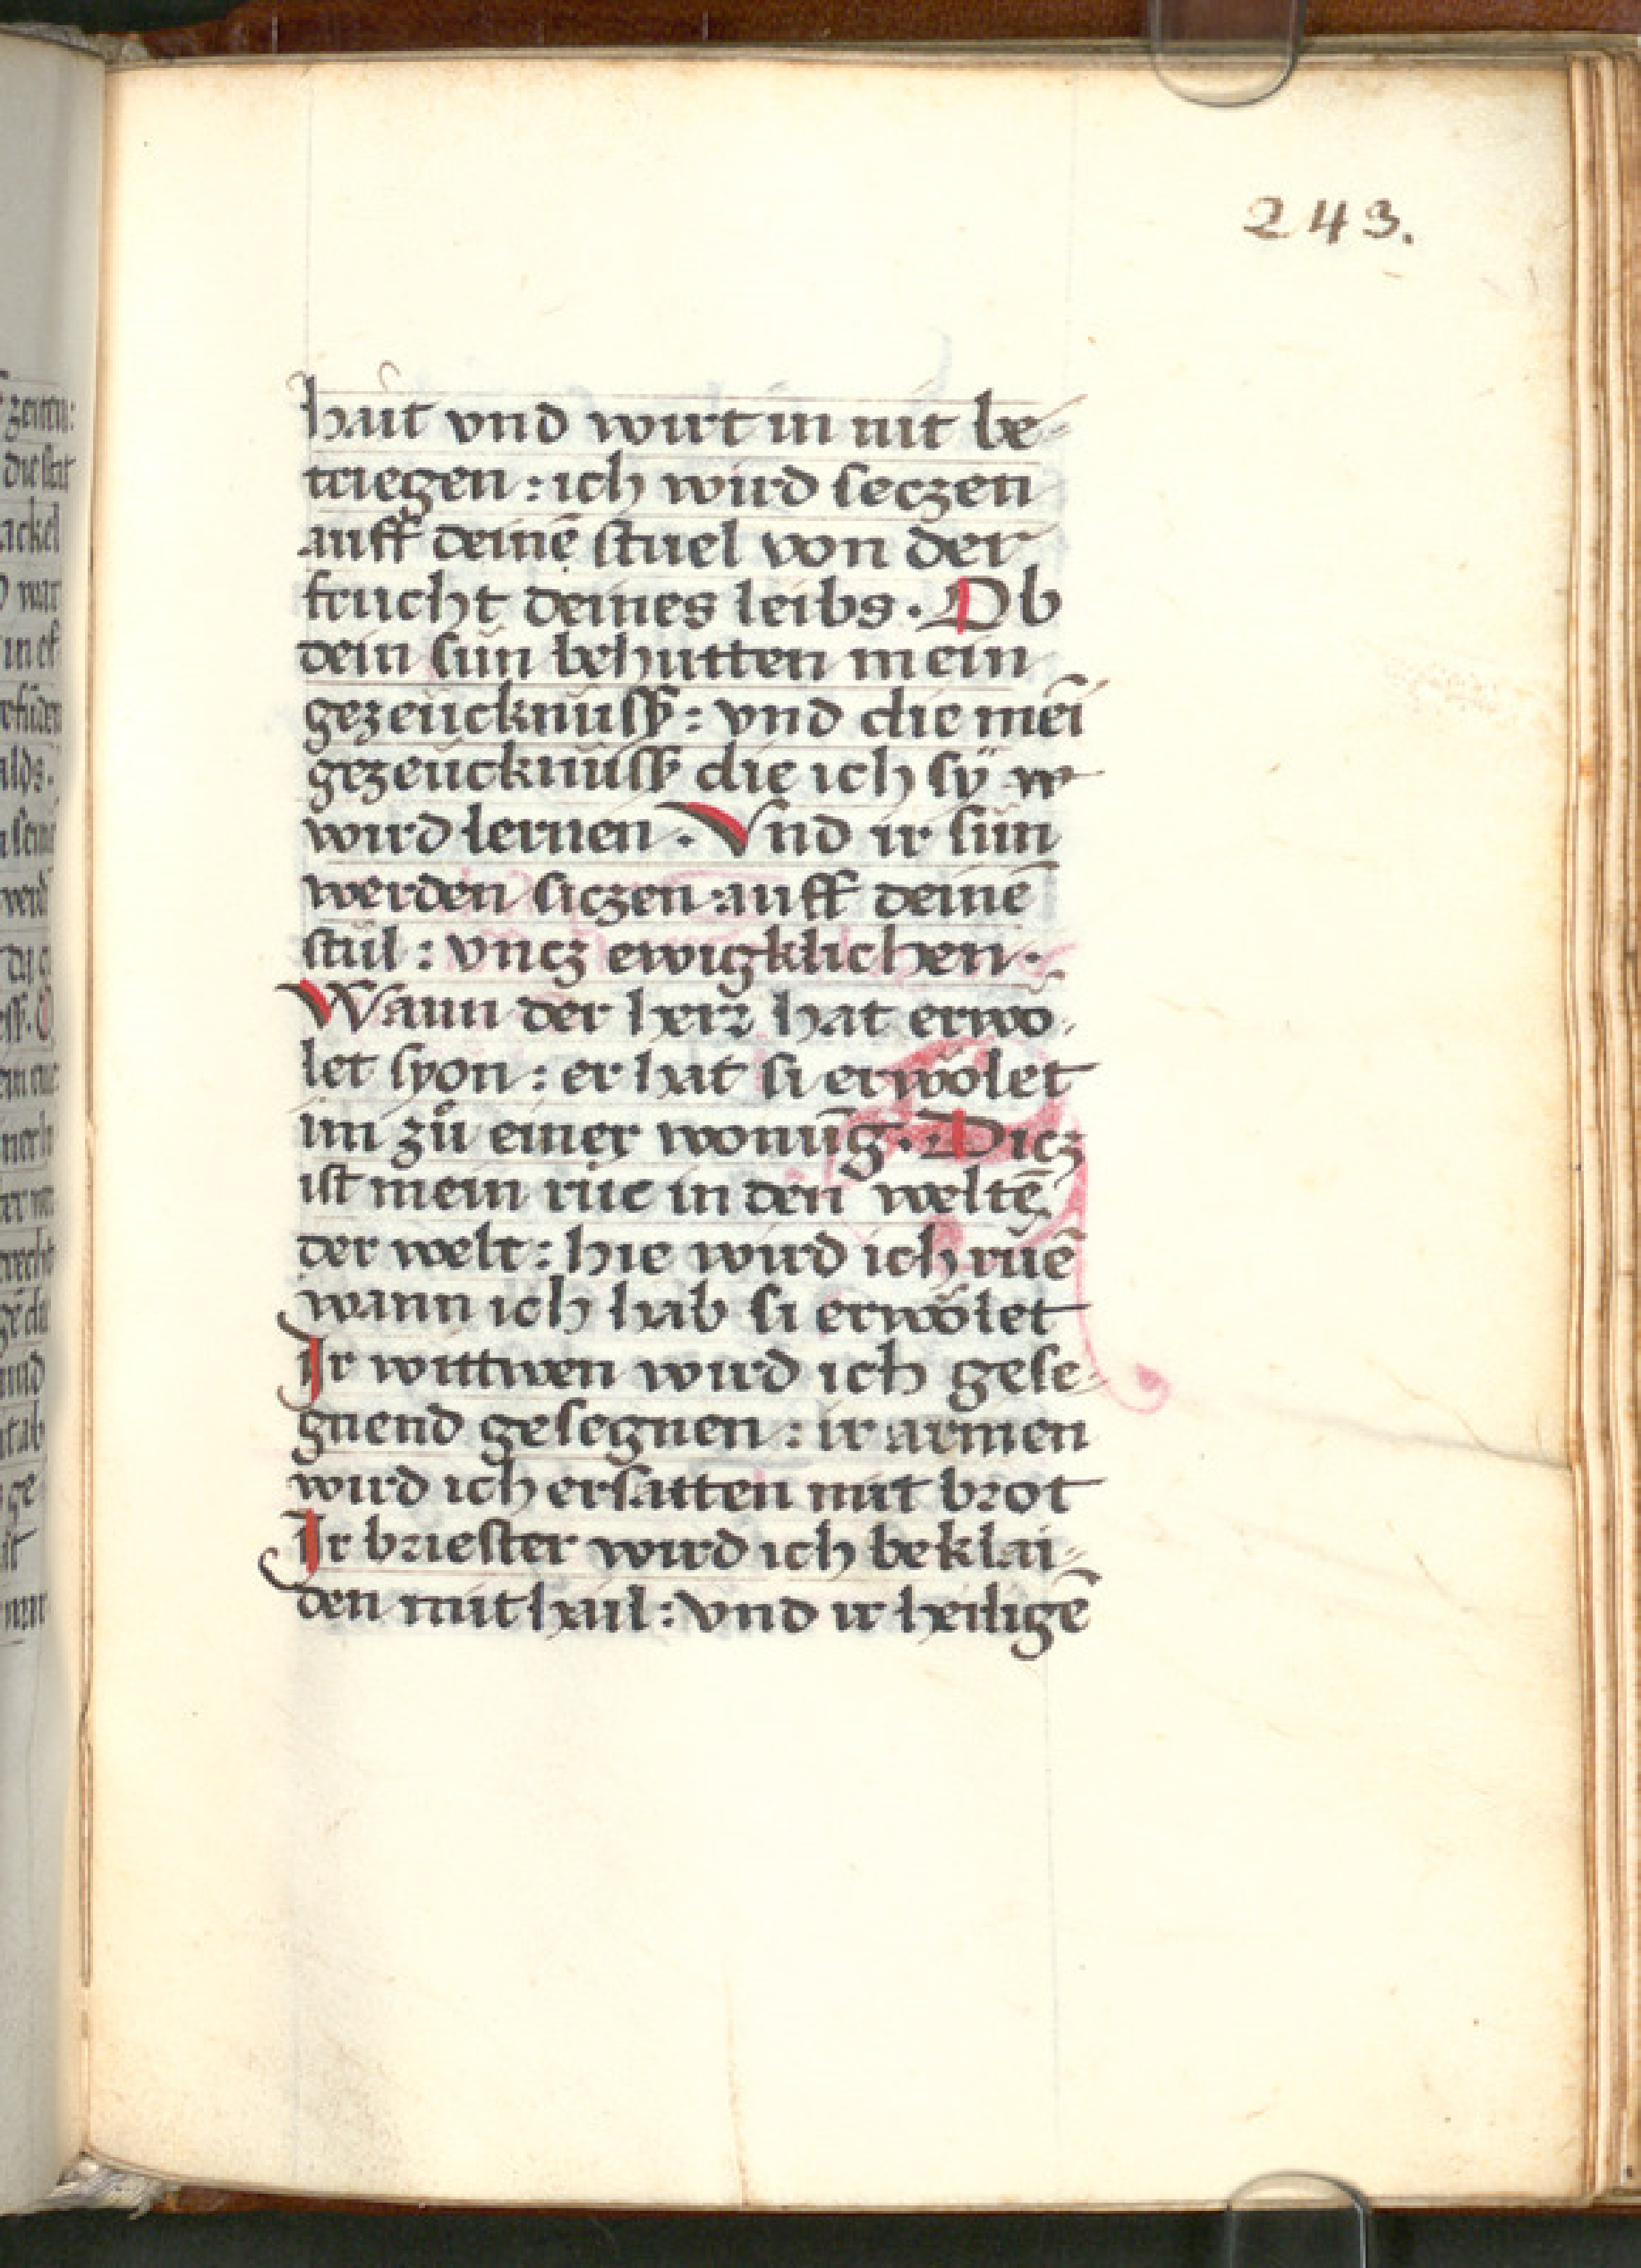 243.
haut vnd wirt in nit be-
triegen : ich wird seczen
auff deinē stuel von der
frucht deines leibs . Ob
dein sün behutten mein
gezeücknüss : vnd die mēi
gezeücknüss die ich sÿ w
wird lernen . Vnd ir sün
werden siczen auff deinē
stůl : vncz ewigklichen .
Wann der herr hat erwö-
let syon : er hat si erwölet
im zů einer wonūg . Dicz
ist mein růe in den weltē
der welt : hie wird ich růē
wann ich hab si erwölet
Ir wittwen wird ich gese-
gnend gesegnen : ir armen
wird ich ersatten mit brot
Ir briester wird ich beklai-
den mit hail : vnd ir heiligē